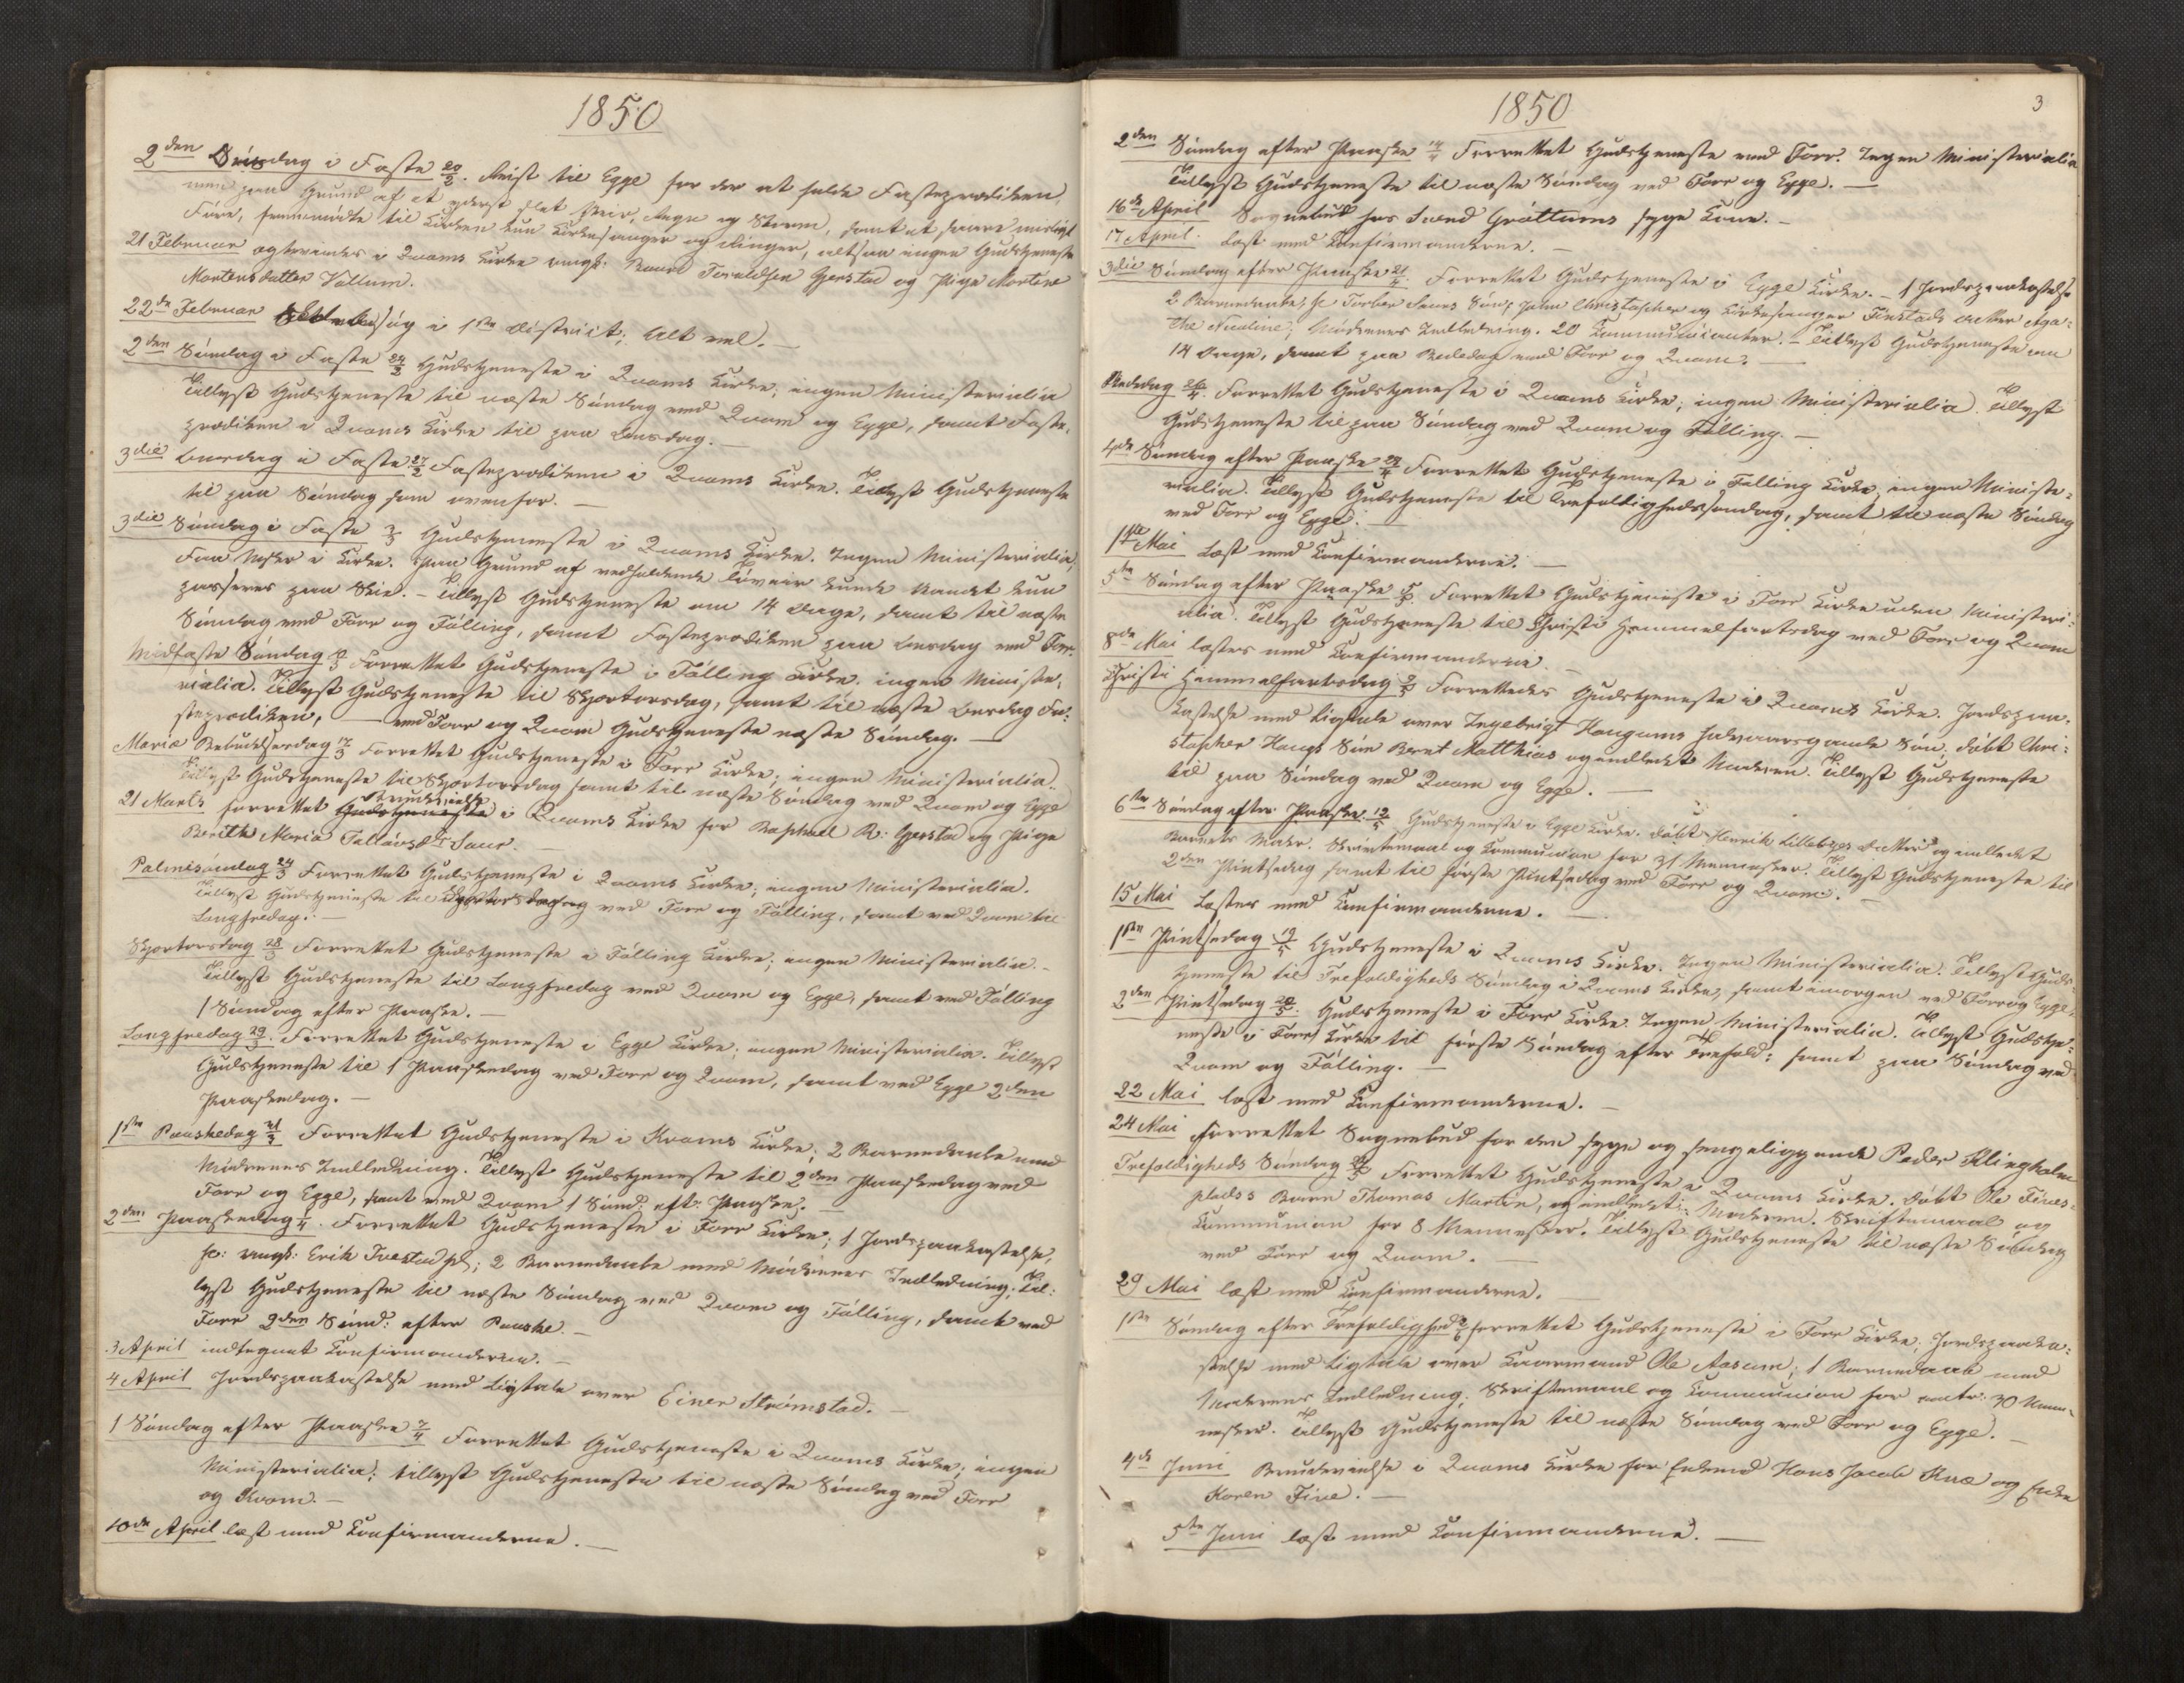 1850
2den Onsdag i Faste 20/2. Reist til Egge for der at holde Fasteprædiken,
men paa Grund af et yderst slet Veir, Regn og Storm, samt et saare misligt
Føre, fremmødte til Kirken kun Kirkesanger og Ringer, altsaa ingen Gudstjeneste
21 Februar ægteviedes i Quams Kirke ungk: Toraldsen Gjerstad og Pige Martine
Mortensdatter Vollum.
22de Februar i 1ste District; alt vel. –
2den Søndag i Faste 24/2 Gudstjeneste i Quams Kirke; ingen Ministerialia
Tillyst Gudstjeneste til næste Søndag ved Quam og Egge, samt Faste-
prædiken i Quams Kirke til paa Onsdag. –
3die Onsdag i Faste 27/2 Fasteprædiken i Quams Kirke. Tillyst Gudstjeneste
til paa Søndag som ovenfor. –
3die Søndag i Faste 3/3 Gudstjeneste i Quams Kirke. Ingen Ministerialia,
Faa Msker i Kirke. Paa Grund af vedholdende Tøveir kunde Vandet kun
passeres paa Skie. – Tillyst Gudstjeneste om 14 Dage, samt til næste
Søndag ved For og Følling, samt Fasteprædiken paa Onsdag ved For.
Midfaste Søndag Forrettet Gudstjeneste i Følling Kirke. ingen Ministe-
rialia. Tillyst Gudstjeneste til Skjertorsdag, samt til næste Onsdag Fa-
steprædiken, – ved For og Quam Gudstjeneste næste Søndag. –
Mariæ Bebudelsesdag 17/3 Forrettet Gudstjeneste i Fors Kirke; ingen Ministerialia.
Tillyst Gudstjeneste til Skjertorsdag samt til næste Søndag ved Quam og Egge
21 Marts forrettet Brudevielse i Quams Kirke for Raphael R: Gjerstad og Pige
Berith Maria Fallovsdtr Saur. –
Palmesøndag 24/3 Forrettet Gudstjeneste i Quams Kirke; ingen Ministerialia.
Tillyst Gudstjeneste til Skjertorsdag ved For og Følling, samt ved Quam til
Langfredag. –
Skjertorsdag 28/3 Forrettet Gudstjeneste i Følling Kirke; ingen Ministerialia. –
Tillyst Gudstjeneste til Langfredag ved Quam og Egge, samt ved Følling
1 Søndag efter Paaske. –
Langfredag 29/3. Forrettet Gudstjeneste i Egge Kirke; ingen Ministerialia. Tillyst
Gudstjeneste til 1 Paaskedag ved For og Quam, samt ved Egge 2den
Paaskedag. –
1ste Paaskedag 31/3 Forrettet Gudstjeneste i Kvams Kirke; 2 Barnedaabe med
Mødrenes Indledning. Tillyst Gudstjeneste til 2den Paaskedag ved
For og Egge, samt ved Quam 1 Sønd: eft: Paaske. –
2den Paaskedag 1/4. Forrettet Gudstjeneste i Fors Kirke; 1 Jordspaakastelse,
sc: ungk: Erik Tvestad pl; 2 Barnedaabe med Mødrenes Indledning; Til-
lyst Gudstjeneste til næste Søndag ved Quam og Følling, samt ved
For 2den Sønd: efter Paaske. –
3 April indtegnet Konfirmanderne. –
4 April Jordspaakastelse med Ligtale over Einer Strømstad. –
1 Søndag efter Paaske 7/4 Forrettet Gudstjeneste i Quams Kirke; ingen
Ministerialia; tillyst Gudstjeneste til næste Søndag ved For
og Kvam. –
10de April læst med Konfirmanderne. –
1850
3
2den Søndag efter Paaske 14/4 Forrettet Gudstjeneste ved For. Ingen Ministerialia
Tillyst Gudstjeneste til næste Søndag ved For og Egge. –
16de April Sognebud hos Svend Grøttums syge Kone. –
17 April. Læst med Konfirmanderne. –
3die Søndag efter Paaske 21/4. Forrettet Gudstjeneste i Egge Kirke. – 1 Jordspaakastelse
2 Barnedaabe, sc Torber Søn, John Christopher og Kirkesanger Finstads Datter Aga-
the Nicoline; Mødrenes Indledning. 20 Kommunicanter. – Tillyst Gudstjeneste om
14 Dage, samt paa Bededag ved For og Quam. –
Bededag 26/4. Forrettet Gudstjeneste i Quams Kirke; ingen Ministerialia. Tillyst
Gudstjeneste til paa Søndag ved Quam og Følling. –
4de Søndag efter Paaske 28/4 Forrettet Gudstjeneste i Følling Kirke, ingen Ministe-
rialia. Tillyst Gudstjeneste til Trefoldighedssøndag, samt til næste Søndag
ved For og Egge. –
1ste Mai Læst med Konfirmanderne. –
5te Søndag efter Paaske 5/5. Forrettet Gudstjeneste i Fors Kirke uden Ministeri-
alia. Tillyst Gudstjeneste til Christi Himmelfartsdag ved For og Quam
8de Mai læstes med Konfirmanderne. –
Christi Himmelfartsdag 9/5 Forrettedes Gudstjeneste i Quams Kirke. Jordspaa-
kastelse med Ligtale over Ingebrigt Haugums halvaarsgamle Søn; døbt Chri-
stopher Haugs Søn Bernt Matthias og indledet Moderen. Tillyst Gudstjeneste
til paa Søndag ved Quam og Egge. –
6te Søndag efter Paaske 12/5 Gudstjeneste i Egge Kirke. døbt Henrik Datter og indledet
Barnets Moder. Skriftemaal og Kommunion for 31 Mennesker. Tillyst Gudstjeneste til
2den Pintsedag samt til første Pintsedag ved For og Quam. –
15 Mai Læstes med Konfirmanderne. –
1ste Pintsedag 19/5 Gudstjeneste i Quams Kirke. Ingen Ministerialia. Tillyst Guds-
tjeneste til Trefoldigheds Søndag i Quams Kirke, samt imorgen ved For og Egge.
2den Pintsedag 20/5. Gudstjeneste i Fors Kirke. Ingen Ministerialia. Tillyst Gudstje-
neste i Fors Kirke til første Søndag efter Trefold: samt paa Søndag ved
Quam og Følling. –
22 Mai læst med Konfirmanderne. –
24 Mai forrettet Sognebud for den syge og sengeliggende Peder Klingholm
Trefoldigheds Søndag 26/5 Forrettet Gudstjeneste i Quams Kirke. døbt Ole Fines-
plads's Barn Thomas Martin, og indledet Moderen. Skriftemaal og
Kommunion for 8 Mennesker. Tillyst Gudstjeneste til næste Søndag
ved For og Quam. –
29 Mai læst med Konfirmanderne. –
1ste Søndag efter Trefoldighed 2/6 forrettet Gudstjeneste i Fors Kirke; Jordspaaka-
stelse med Ligtale over Ole Aasum; 1 Barnedaab med
Moderens Indledning; Skriftemaal og Kommunion for 30 Men-
nesker. Tillyst Gudstjeneste til næste Søndag ved For og Egge. –
4de Juni Brudevielse i Quams Kirke for Enkemd Hans Jacob Kræ og Enke
Karen Five. –
5te Juni læst med Konfirmanderne. –